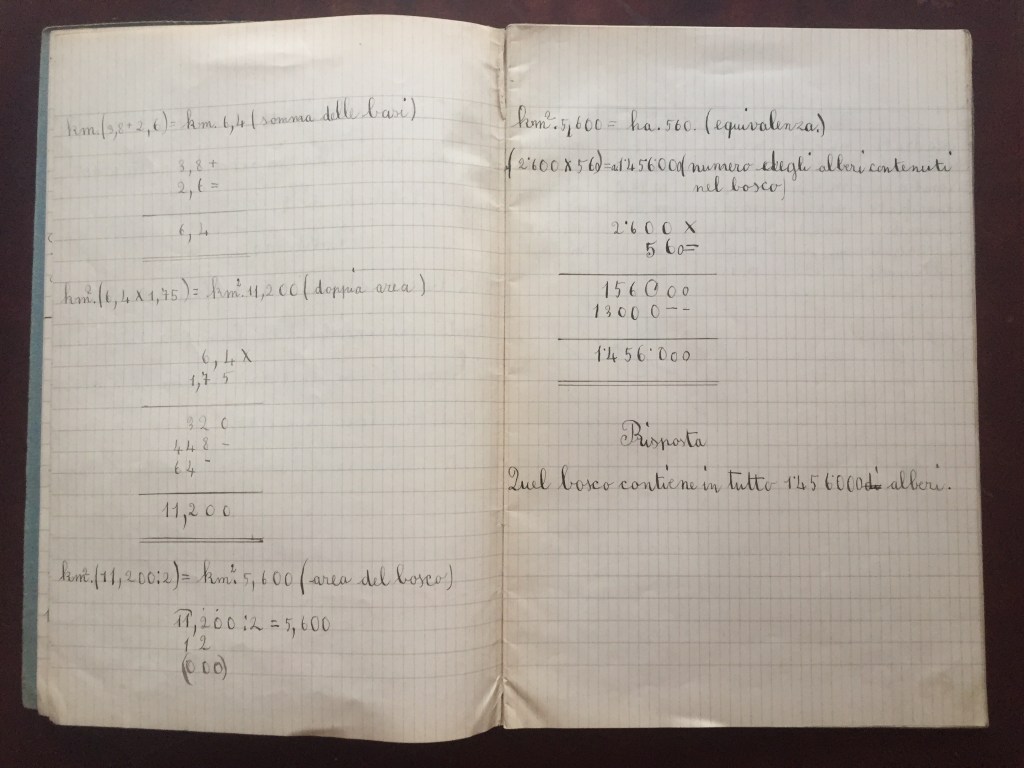 km.(3,8+2,6)= km. 6,4 (somma delle basi)
3,8+
2,6=
6,4
km².(6,4x1,75)= km².11,200 (doppia area)
6,4x
1,75
320
448-
64-
11,200
km².(11,200:2)= km².5,600 (area del bosco)
11,200:2=5,600
12
(000)
km².5,600 = ha.560. (equivalenza.)
(2˙600x560)=1˙456˙000 (numero degli alberi contenuti
nel bosco)
2˙600x
560=
156000
13000--
1˙456˙000
Risposta
Quel bosco contiene in tutto 1˙456˙000 di alberi.